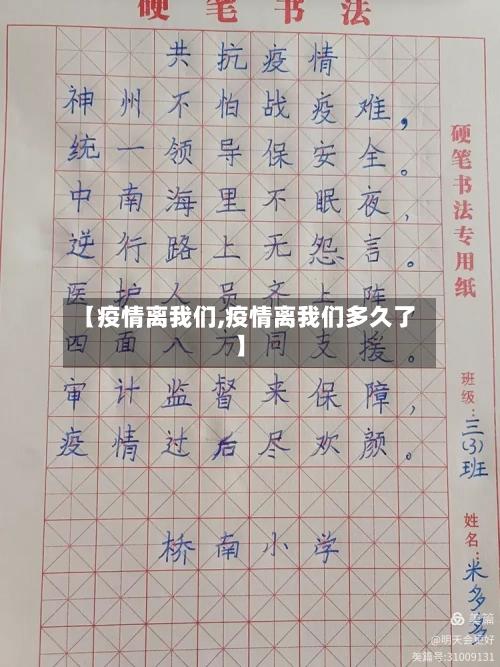 硬笔书法
共抗疫情
神州不怕战疫难，
统一领导保安全。
中南海里不眠夜，
逆行路上无怨言。
医护人员齐上阵
【疫情离我们,疫情离我们多久了
】
四面八方同支援。
审计监督来保障，
疫情过后尽欢颜。
桥南小学
硬笔书法专用纸
班级：三(3)班
姓名：米多多
美篇
@明天会更好
美篇号:31009131